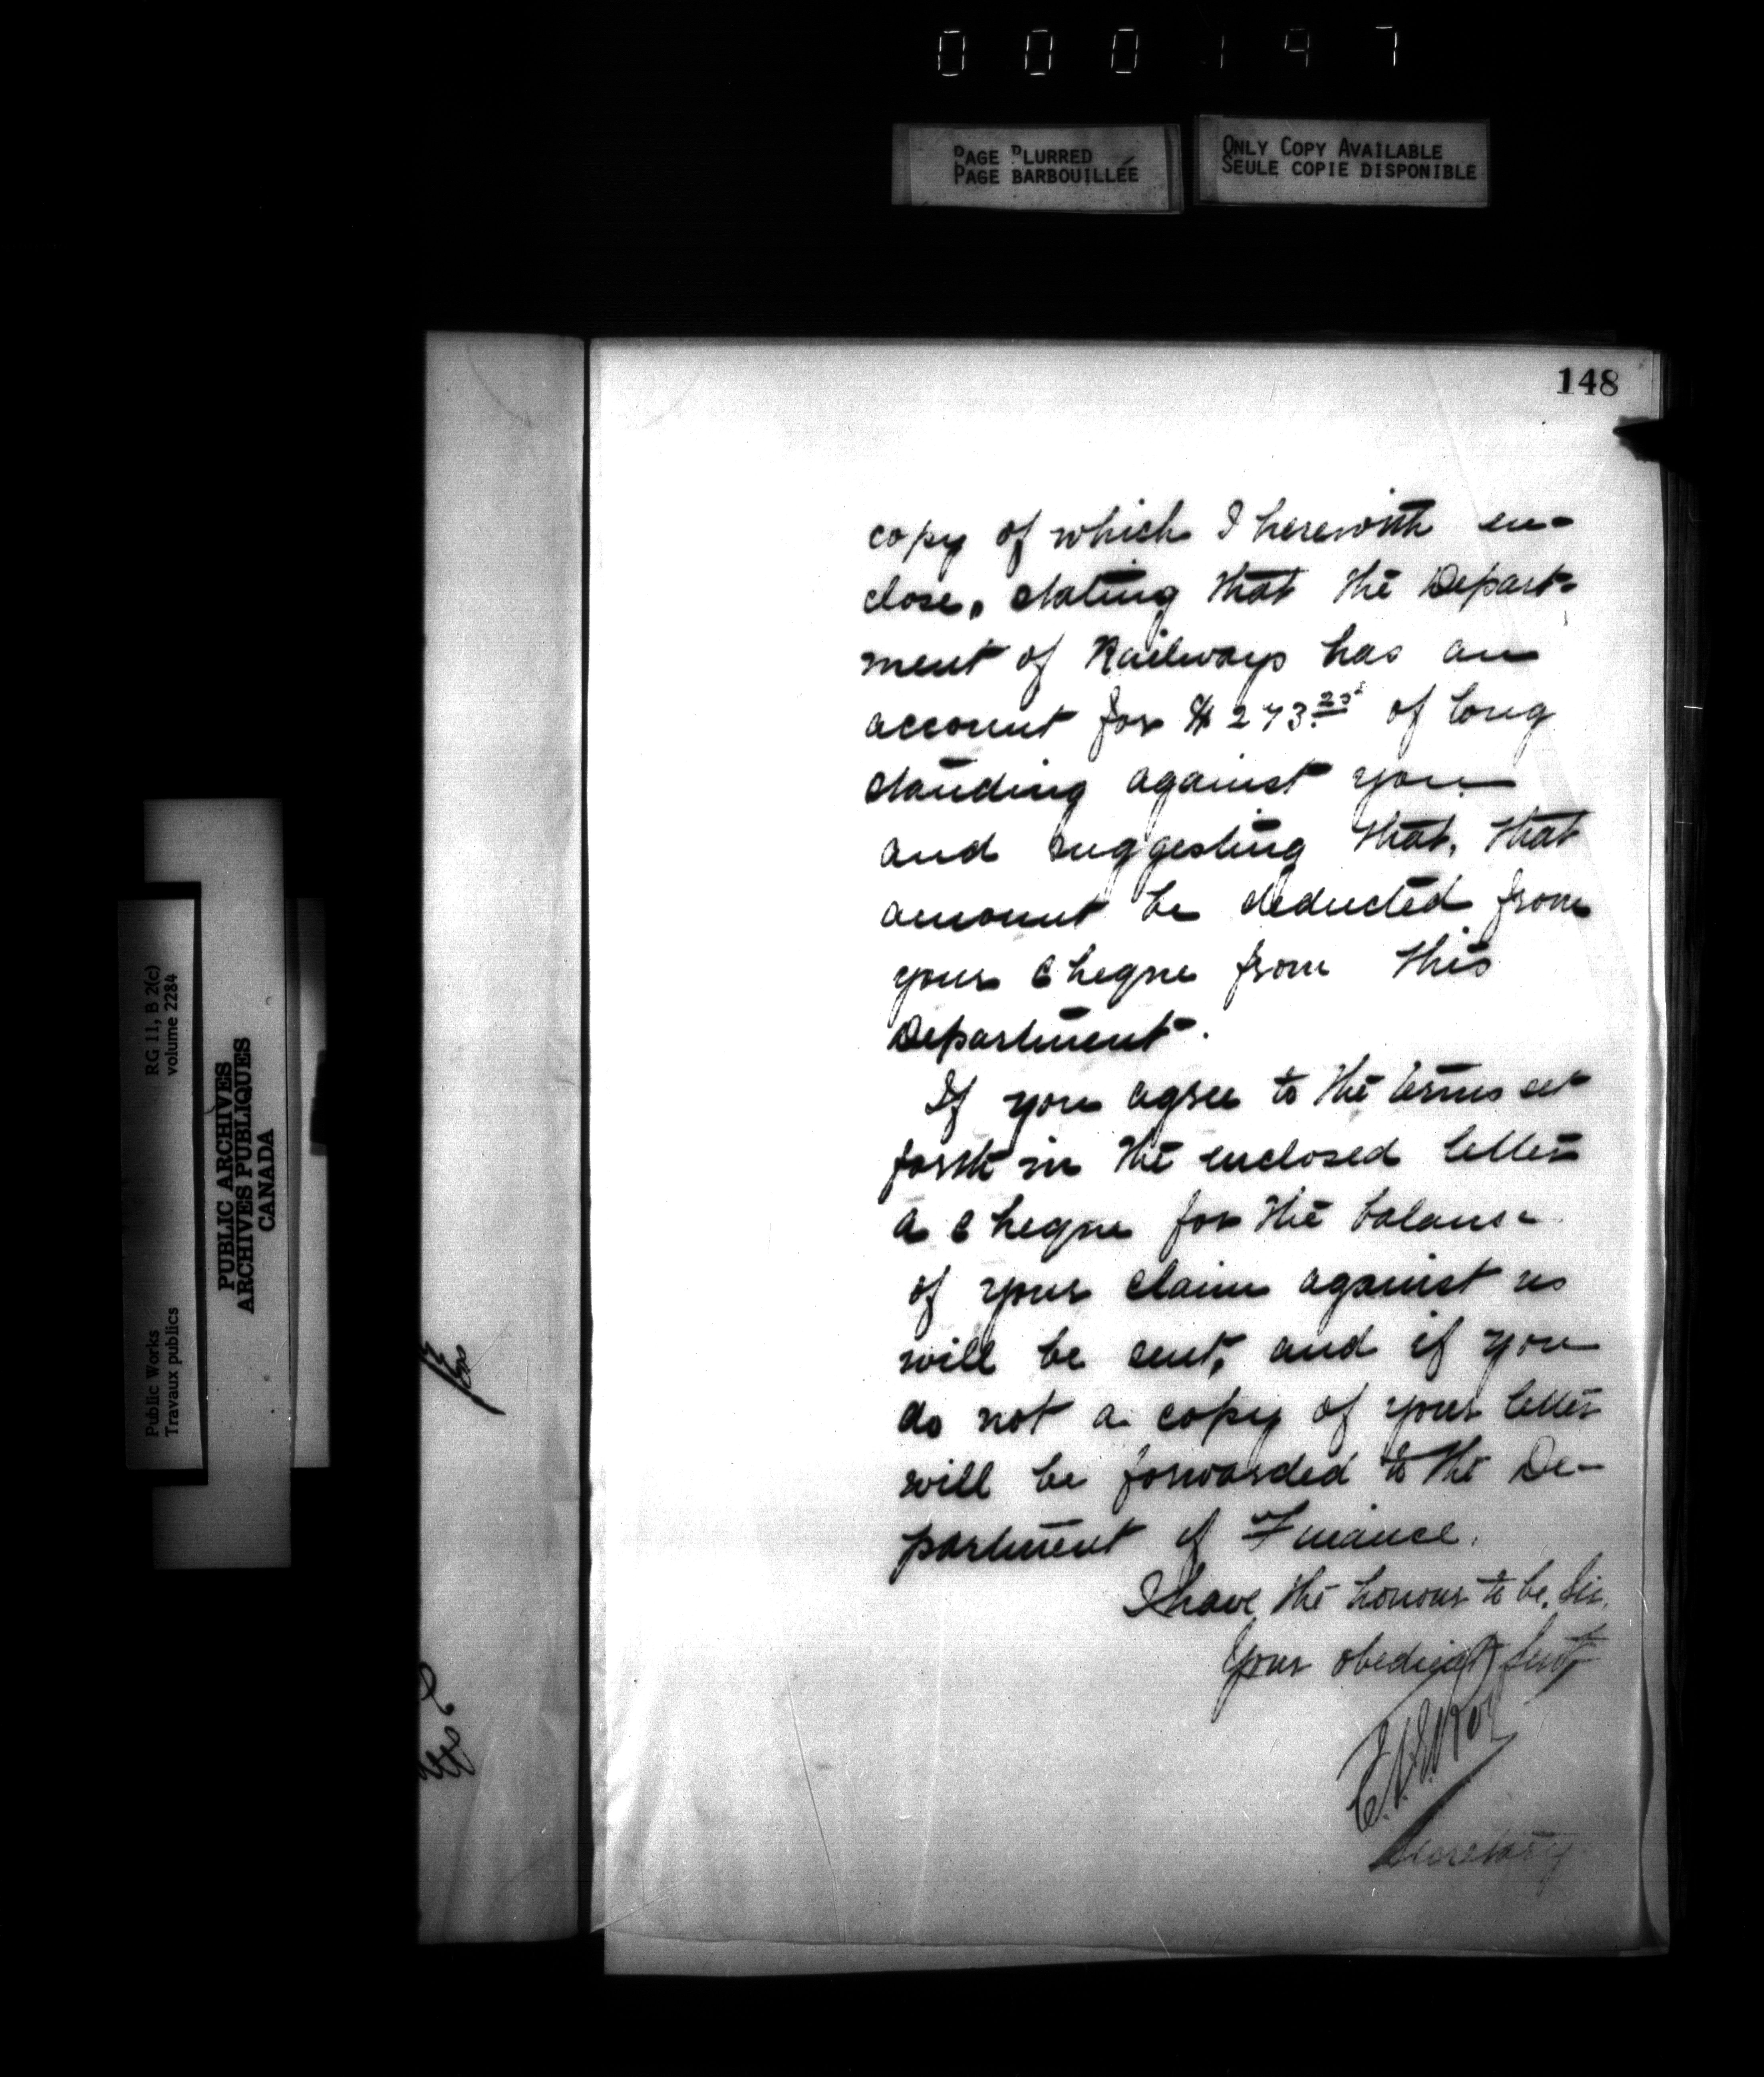 000197
PAGE BLURRED
PAGE BARBOUILLÉE
ONLY COPY AVAILABLE
SEULE COPIE DISPONIBLE
148
copy of which I herewith en-
close, stating that the Depart-
ment of Railways has an
account for $273.25 of long
standing against you
and suggesting that, that
amount be deducted from
your cheque from this
Department.
If you agree to the terms set
forth in the enclosed letter
a cheque for the balance
of your claim against us
will be sent, and if you
do not a copy of your letter
will be forwarded to the De-
partment of Finance.
I have the honour to be, Sir,
Your obedient Servt,
Roy
Secretary
RG 11, B 2(c)
volume 2284
PUBLIC ARCHIVES
ARCHIVES PUBLIQUES
CANADA
Public Works
Travaux publics